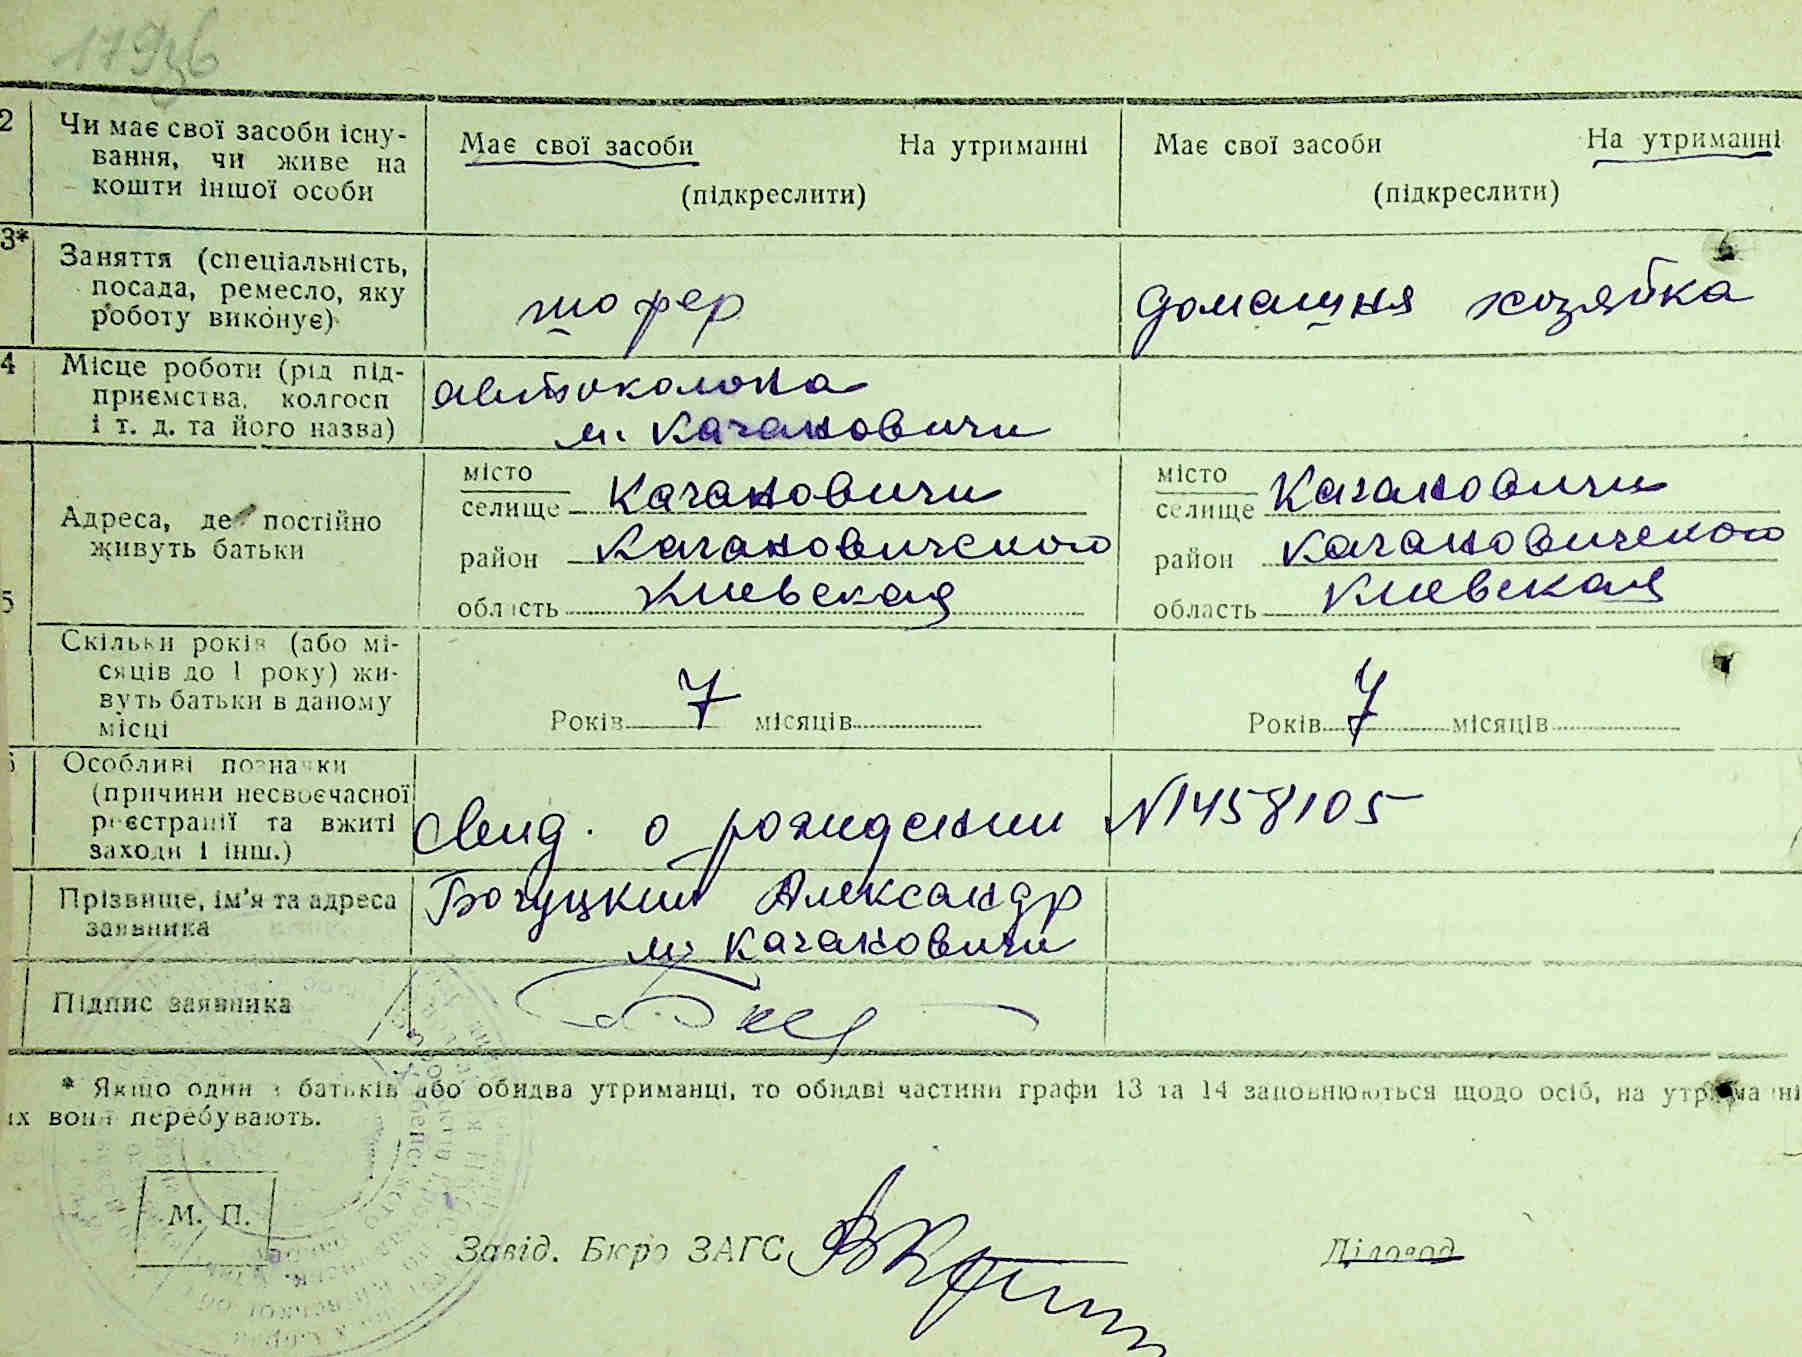 179
2 Чи має свої засоби існу-
вання, чи живе на
кошти іншої особи
Має свої засоби На утриманні
(підкреслити)
Має свої засоби На утриманні
(підкреслити)
3* Заняття (спеціальність,
посада, ремесло, яку
роботу виконує)
шофер
домашня хозяйка
4 Місце роботи (рід під-
приємства, колгосп
і т. д. та його назва)
автоколона
м. Кагановичи
5 Адреса, де постійно
живуть батьки
місто
селище Кагановичи
район Кагановичского
область Киевская
місто
селище Кагановичи
район Кагановичского
область Киевская
Скільки років (або мі-
сяців до 1 року) жи-
вуть батьки в даному
місці
Років 7 місяців
Років 7 місяців
Особливі познач­ки
(причини несвоєчасної
реєстрації та вжиті
заходи і інш.)
Свид. о рождении N1458105
Прізвище, ім'я та адреса
заявника
Богуцкий Александр
м. Кагановичи
Підпис заявника
* Якщо один з батьків або обидва утриманці, то обидві частини графи 13 та 14 заповнюються щодо осіб, на утриманні
их вони перебувають.
М. П.
Завід. Бюро ЗАГС
Діловод